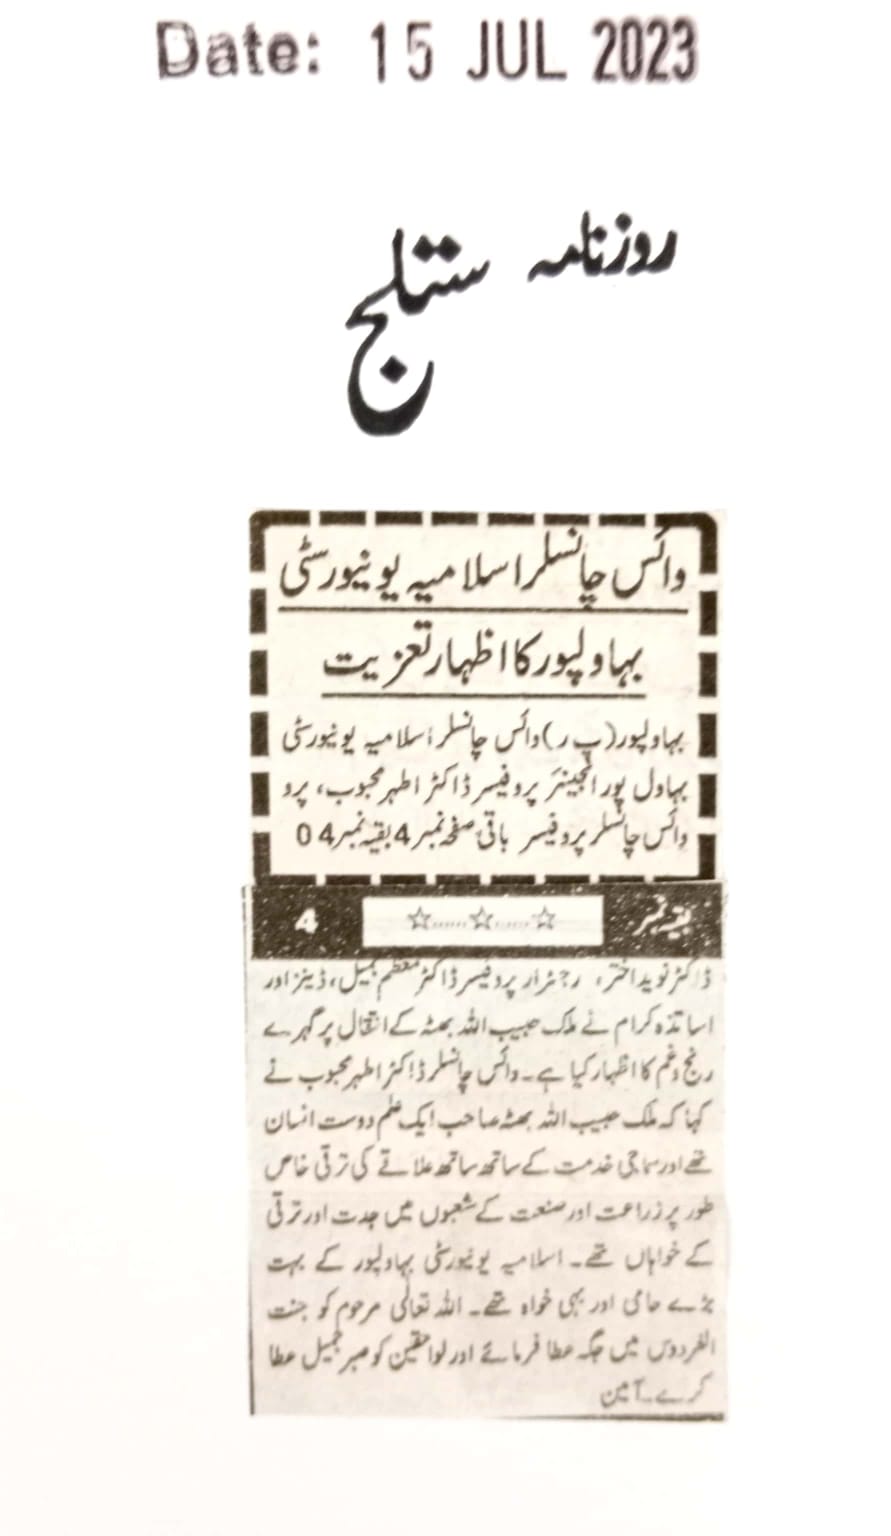 Date: 15 JUL 2023
روزنامہ ستلج
وائس چانسلر اسلامیہ یونیورسٹی
بہاولپور کا اظہار تعزیت
بہاولپور (پ ر) وائس چانسلر اسلامیہ یونیورسٹی
بہاول پور انجینئر پروفیسر ڈاکٹر اطہر محبوب، پرو
وائس چانسلر پروفیسر باقی صفحہ نمبر 4 بقیہ نمبر 04
بقیہ نمبر ☆......☆......☆ 4
ڈاکٹر نوید اختر، رجسٹرار پروفیسر ڈاکٹر معظم جمیل، ڈینز اور
اساتذہ کرام نے ملک حبیب اللہ بھٹہ کے انتقال پر گہرے
رنج وغم کا اظہار کیا ہے۔ وائس چانسلر ڈاکٹر اطہر محبوب نے
کہا کہ ملک حبیب اللہ بھٹہ صاحب ایک علم دوست انسان
تھے اور سماجی خدمت کے ساتھ ساتھ علاقے کی ترقی خاص
طور پر زراعت اور صنعت کے شعبوں میں جدت اور ترقی
کے خواہاں تھے۔ اسلامیہ یونیورسٹی بہاولپور کے بہت
بڑے حامی اور بہی خواہ تھے۔ اللہ تعالٰی مرحوم کو جنت
الفردوس میں جگہ عطا فرمائے اور لواحقین کو صبر جمیل عطا
کرے۔ آمین